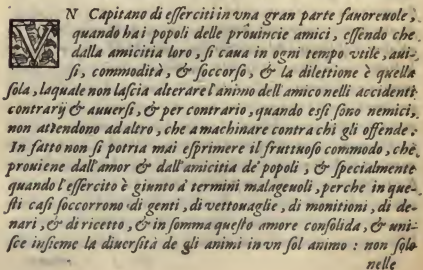 VN Capitano di eſſerciti in vna gran parte fauoreuole,
quando hai popoli delle prouincie amici, eſſendo che
dalla amicitia loro, ſi caua in ogni tempo vtile, aui-
ſi, commodità, & ſoccorſo, & la dilettione è quella
ſola, laquale non laſcia alterare l'animo dell'amico nelli accidenti
contrarij & auuerſi, & per contrario, quando eſſi ſono nemici,
non attendono ad altro, che a machinare contra chi gli offende.
In fatto non ſi potria mai eſprimere il fruttuoſo commodo, che
prouiene dall'amor & dall'amicitia de' popoli, & ſpecialmente
quando l'eſſercito è giunto a termini malageuoli, perche in que-
ſti caſi ſoccorrono di genti, di vettouaglie, di monitioni, di de-
nari, & di ricetto, & in ſomma queſto amore conſolida, & vni-
ſce inſieme la diuerſità de gli animi in vn ſol animo: non ſolo
nelle